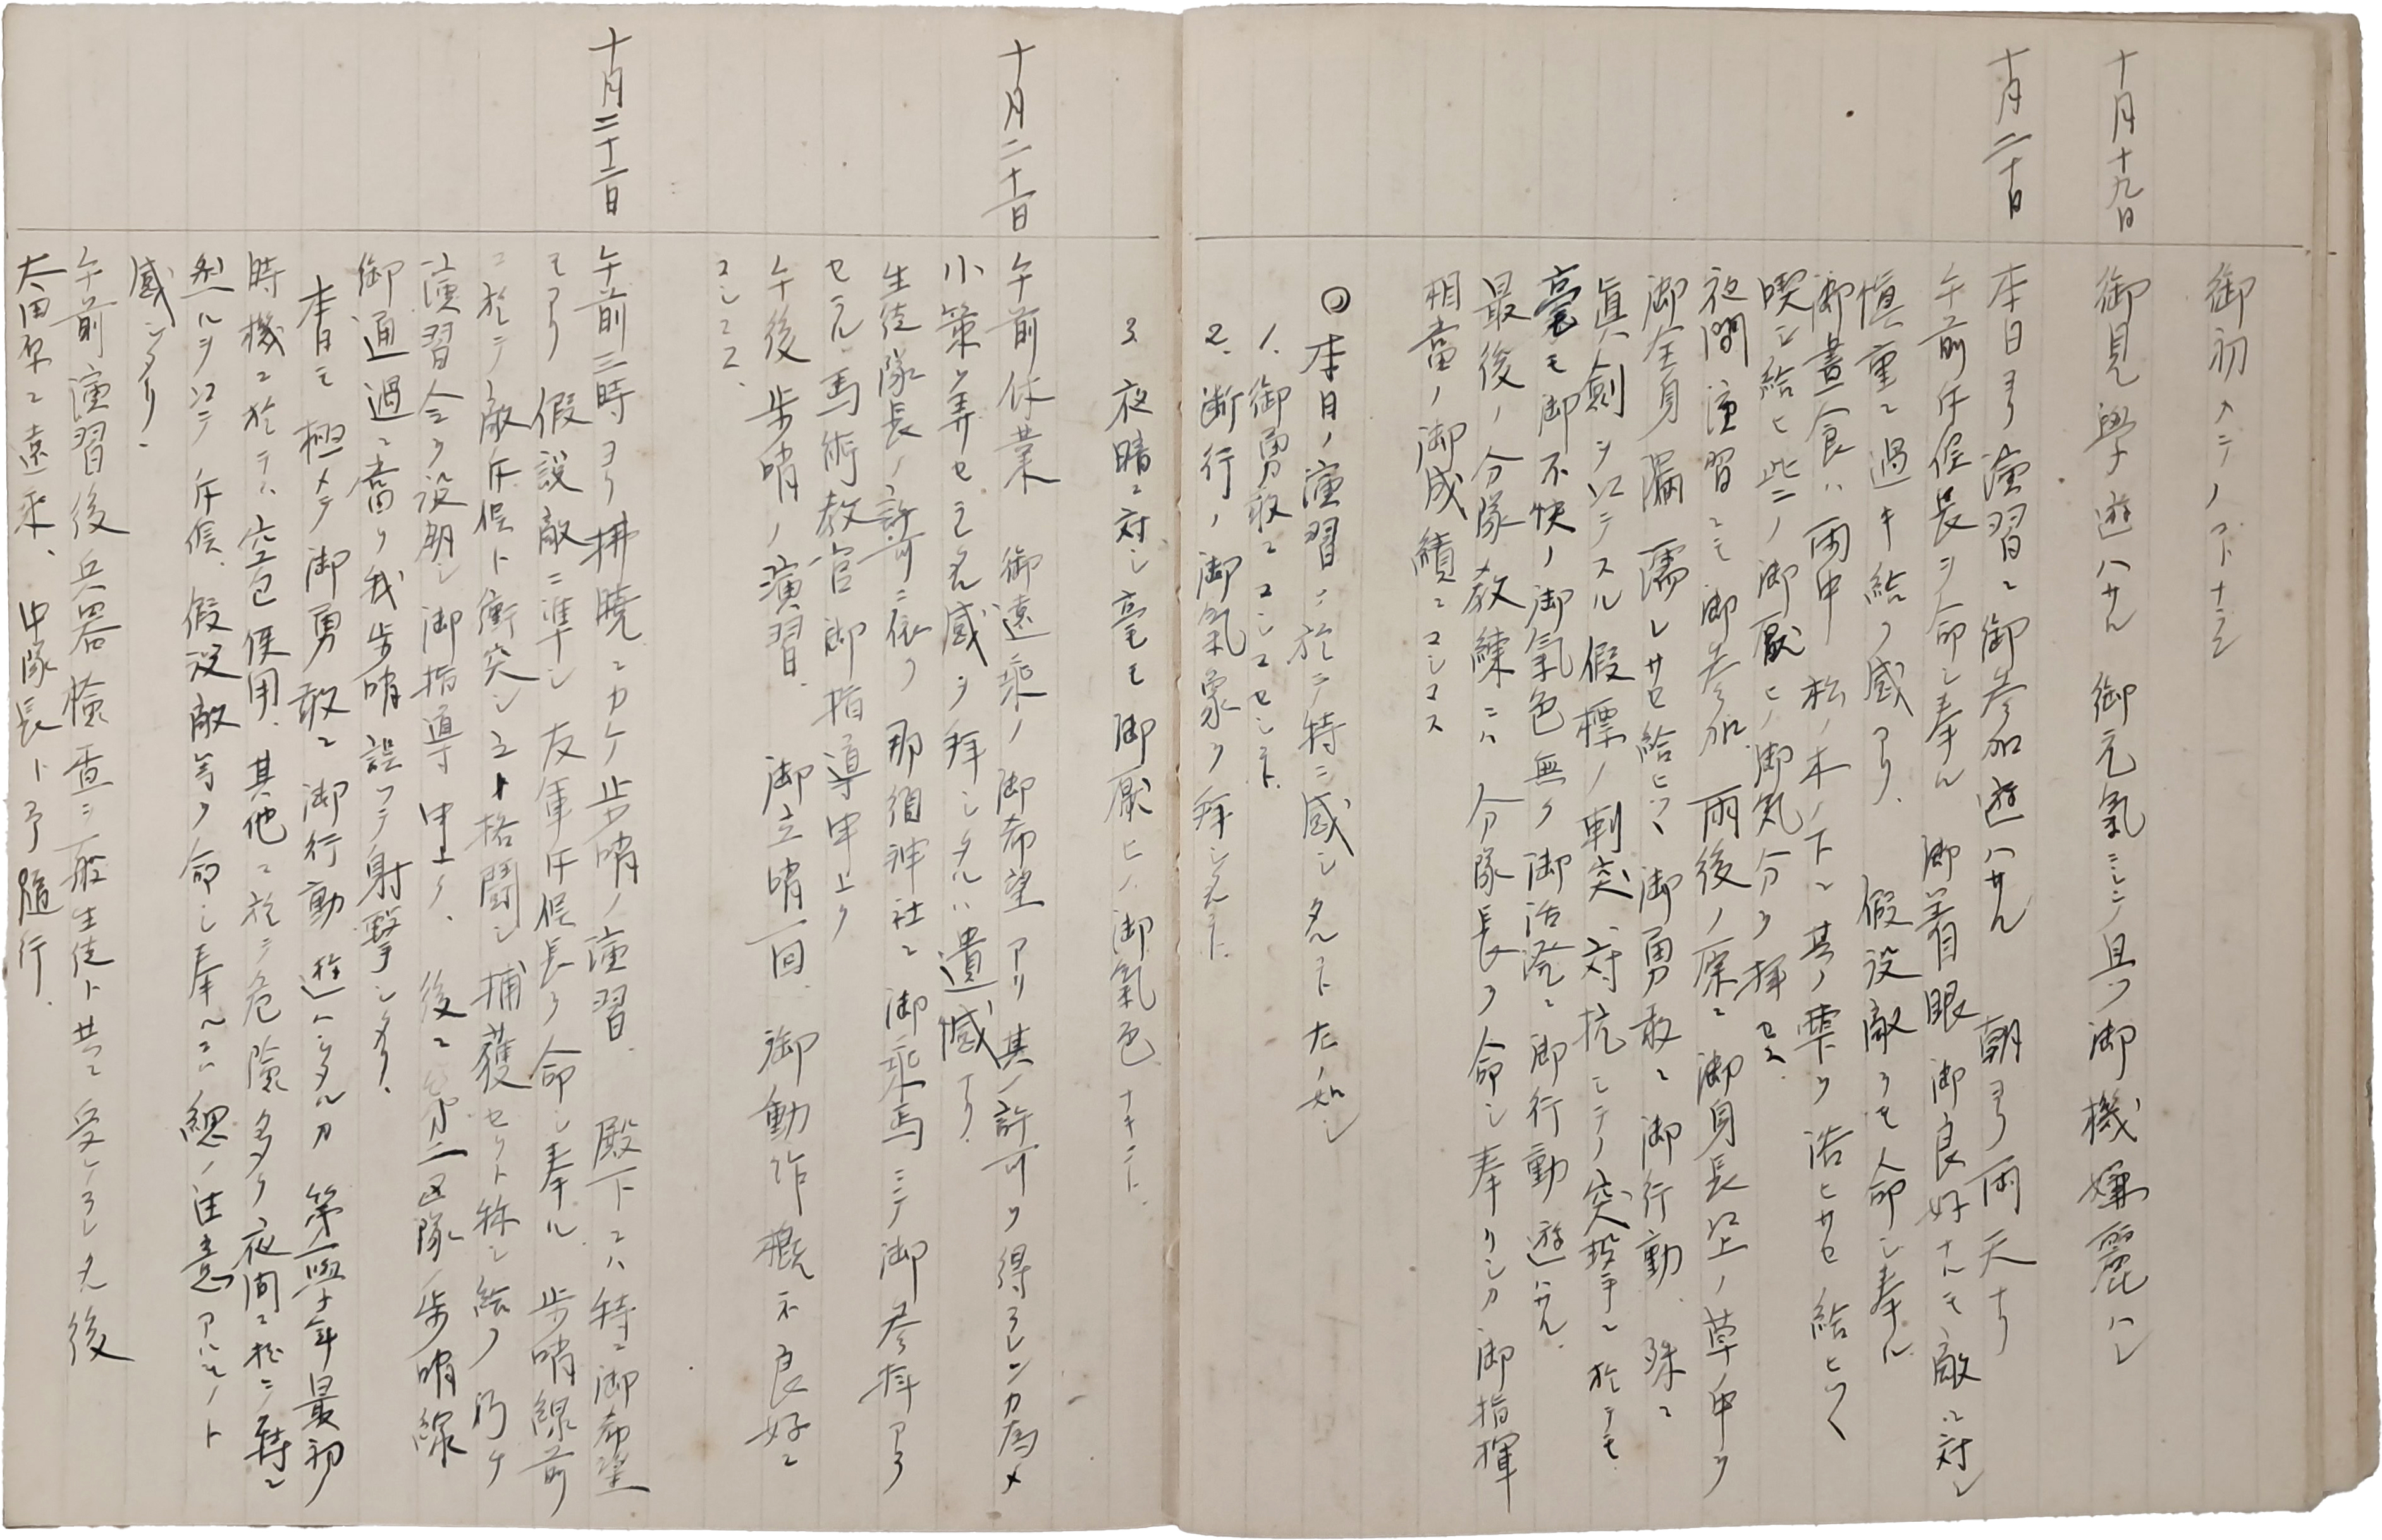 御初メテノコトナラン
十月十九日
御見學遊ハサル 御元氣ニシテ且ツ御機嫌麗ハシ
十月二十日
本日ヨリ演習ニ御参加遊ハサル 朝ヨリ雨天ナリ
午前斥候長ヲ命シ奉ル 御着眼御良好ナルモ敵ニ対シ
慎重ニ過キ給フ感アリ、 假設敵ヲモ命シ奉ル
御晝食ハ雨中松ノ木ノ下ニ其ノ雫ヲ浴ヒサセ給ヒツヽ
喫シ給ヒ些ノ御厭ヒノ御気分ヲ拝セス
夜間演習ニモ御参加 雨後ノ 御身長以上ノ草中ヲ
御全身濡レサセ給ヒツヽ御勇敢ニ御行動、殊ニ
眞剣ヲ以テスル假標ノ刺突、対抗シテノ突撃ニ於テモ
毫モ御不快ノ御氣色無ク御活溌ニ御行動遊ハサル、
最後ノ分隊教練ニハ分隊長ヲ命シ奉リシカ御指揮
相當ノ御成績ニマシマス
◎本日ノ演習ニ於テ特ニ感シタルコト左ノ如シ
1、御勇敢ニマシマセシコト、
2、断行ノ御氣象ヲ拝シタルコト、
3、夜暗ニ対シ毫モ御厭ヒノ御氣色ナキコト、
十月二十一日
午前休業 御遠乗ノ御希望アリ其ノ許可ヲ得ラレンカ為メ
小策ヲ弄セラレタル感ヲ拝シタルハ遺憾ナリ、
生徒隊長ノ許可ニ依リ那須神社ニ御乘馬ニテ御参拝アラ
セラル 馬術教官御指導申上ク
午後歩哨ノ演習、 御立哨一回、御動作概ネ良好ニ
マシマス、
十月二十二日
午前三時ヨリ拂暁ニカケ歩哨ノ演習、 殿下ニハ特ニ御希望
モアリ 假設敵ニ準シ友軍斥候長ヲ命シ奉ル 歩哨線前
ニ於テ敵斥候ト衝突シ之ト格闘シ捕獲セリト称シ給フ
演習 御指導申上ク、後ニ第二区隊ノ歩哨線
御通過ニ當リ我歩哨誤ツテ射撃シタリ、
本日モ極メテ御勇敢ニ御行動遊ハシタルカ第一學年最初ノ
時機ニ於テハ空包使用、其他ニ於テ危險多ク夜間ニ於テ特ニ
然ルヲ以テ斥候、假設敵等ヲ命シ奉ヘニハ ノ注意アルモノト
感シタリ、
午前演習後兵器檢査ヲ一般生徒ト共ニ受ケラレタ後
大田原ニ遠乘、中隊長ト予随行、